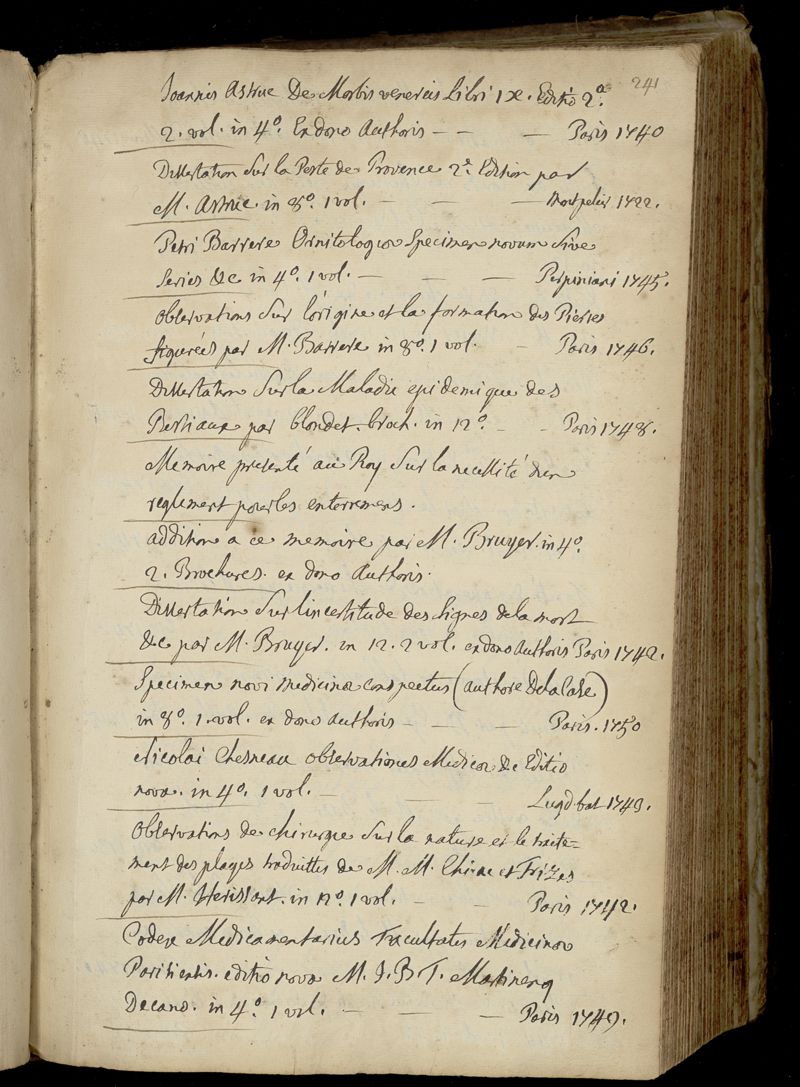 241
Joannis Astruc De Morbis venereis Libri ix. Editio 2a.
2. vol. in 4o. Ex dono Authoris — — — Paris 1740
Dissertation Sur la Peste de Provence 2e Edition par
M. Astruc in 8o. 1 vol. — — — Montpelier 1722.
Petri Barrere Ornitologiæ Specimen novum Sive
Series &c in 4o. 1 vol. — — — Perpiniani 1745.
Observations Sur l'origine et la formation des Pierres
figurées par M. Barrere in 8o. 1 vol. — Paris 1746.
Dissertation Sur la Maladie epidemique des
Bestiaux par blondet. broch. in 12o. — — Paris 1748.
Memoire presenté au Roy Sur la necessité d'un
reglement pour les enterremens.
addition a ce memoire par M. Bruyer. in 4o.
2. Brochures. ex dono Authoris.
Dissertation Sur l'incertitude des signes de la mort
&c par M. Bruyer. in 12. 2 vol. ex dono Authoris Paris 1742.
Specimen novi medicinæ conspectus (authore De la Case)
in 8o. 1. vol. ex dono Authoris — — — Paris. 1750
Nicolai Chesneau Observationes Medicæ &c Editio
nova. in 4o. 1 vol. — — — Lugd bat 1743.
Observations de chirurgie Sur la nature et le traite=
ment des playes traduittes de M. M. et
par M. Herissant. in 12o. 1 vol. — — Paris 1742.
Codex Medicamentarius Facultatis Medicinæ
Parisiensis. editio nova M. J. B. T. Martinenq
Decano. in 4o. 1 vol. — — — Paris 1749.